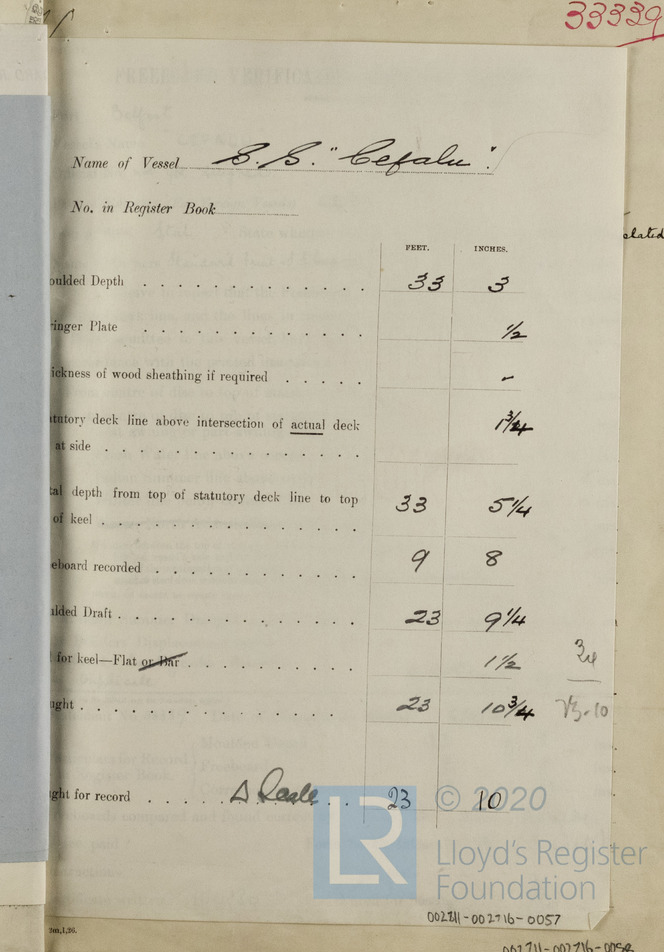 33339
Name of Vessel S.S. "Cefalu".
No. in Register Book
FEET. INCHES.
oulded Depth 33 3
inger Plate 1/2
ickness of wood sheathing if required -
tutory deck line above intersection of actual deck 1 3/4
at side
tal depth from top of statutory deck line to top 33 5 1/4
of keel
eboard recorded 9 8
ulded Draft 23 9 1/4
for keel—Flat or Bar 1 1/2
ught 23 10 3/4
23-10
ught for record 23 10
© 2020
LR
Lloyd's Register
Foundation
002711-002716-0057
2m,1,26.
002711-002716-0058
elated